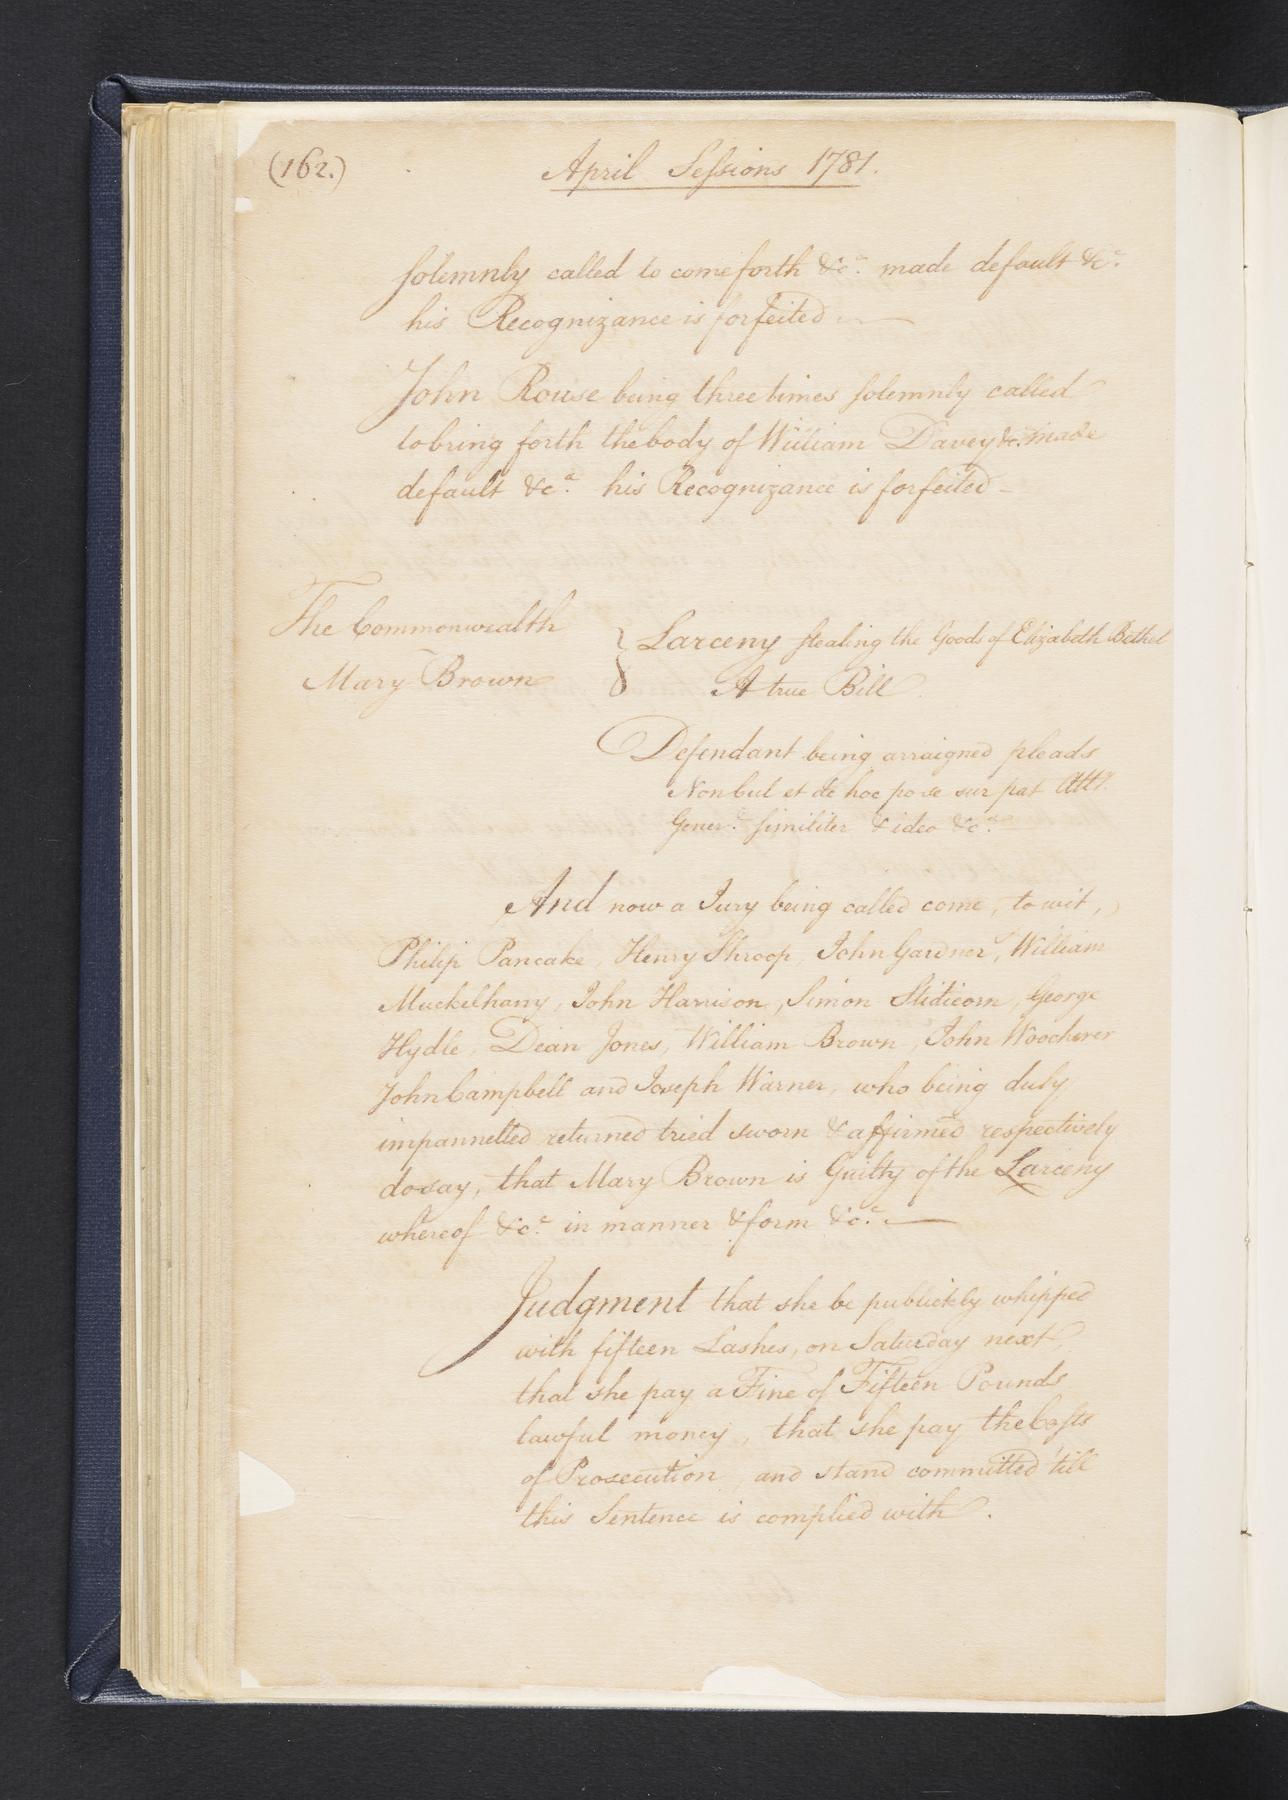 (162.)
April Sessions 1781.
solemnly called to come forth &c.a made default &c.a
his Recognizance is forfeited
John Rouse being three times solemnly called
to bring forth the body of William Davey &c. made
default &c.a his Recognizance is forfeited
The Commonwealth
Mary Brown
Larceny stealing the Goods of Elizabeth Bethel
A true Bill
Defendant being arraigned pleads
Non Cul et de hoc po se sur pat Atty.
Gener.l similiter & ideo &c.a
And now a Jury being called come, to wit,
Philip Pancake, Henry Shroop, John Gardner, William
Muckelhany, John Harrison, Simon Slidicorn, George
Hydle, Dean Jones, William Brown, John Woocherer
John Campbell and Joseph Warner, who being duly
impannelled returned tried sworn & affirmed respectively
do say, that Mary Brown is Guilty of the Larceny
whereof &c.a in manner & form &c.a
Judgment that she be publickly whipped
with fifteen Lashes, on Saturday next,
that she pay a Fine of Fifteen Pounds
lawful money, that she pay the Costs
of Prosecution, and stand committed till
this Sentence is complied with.